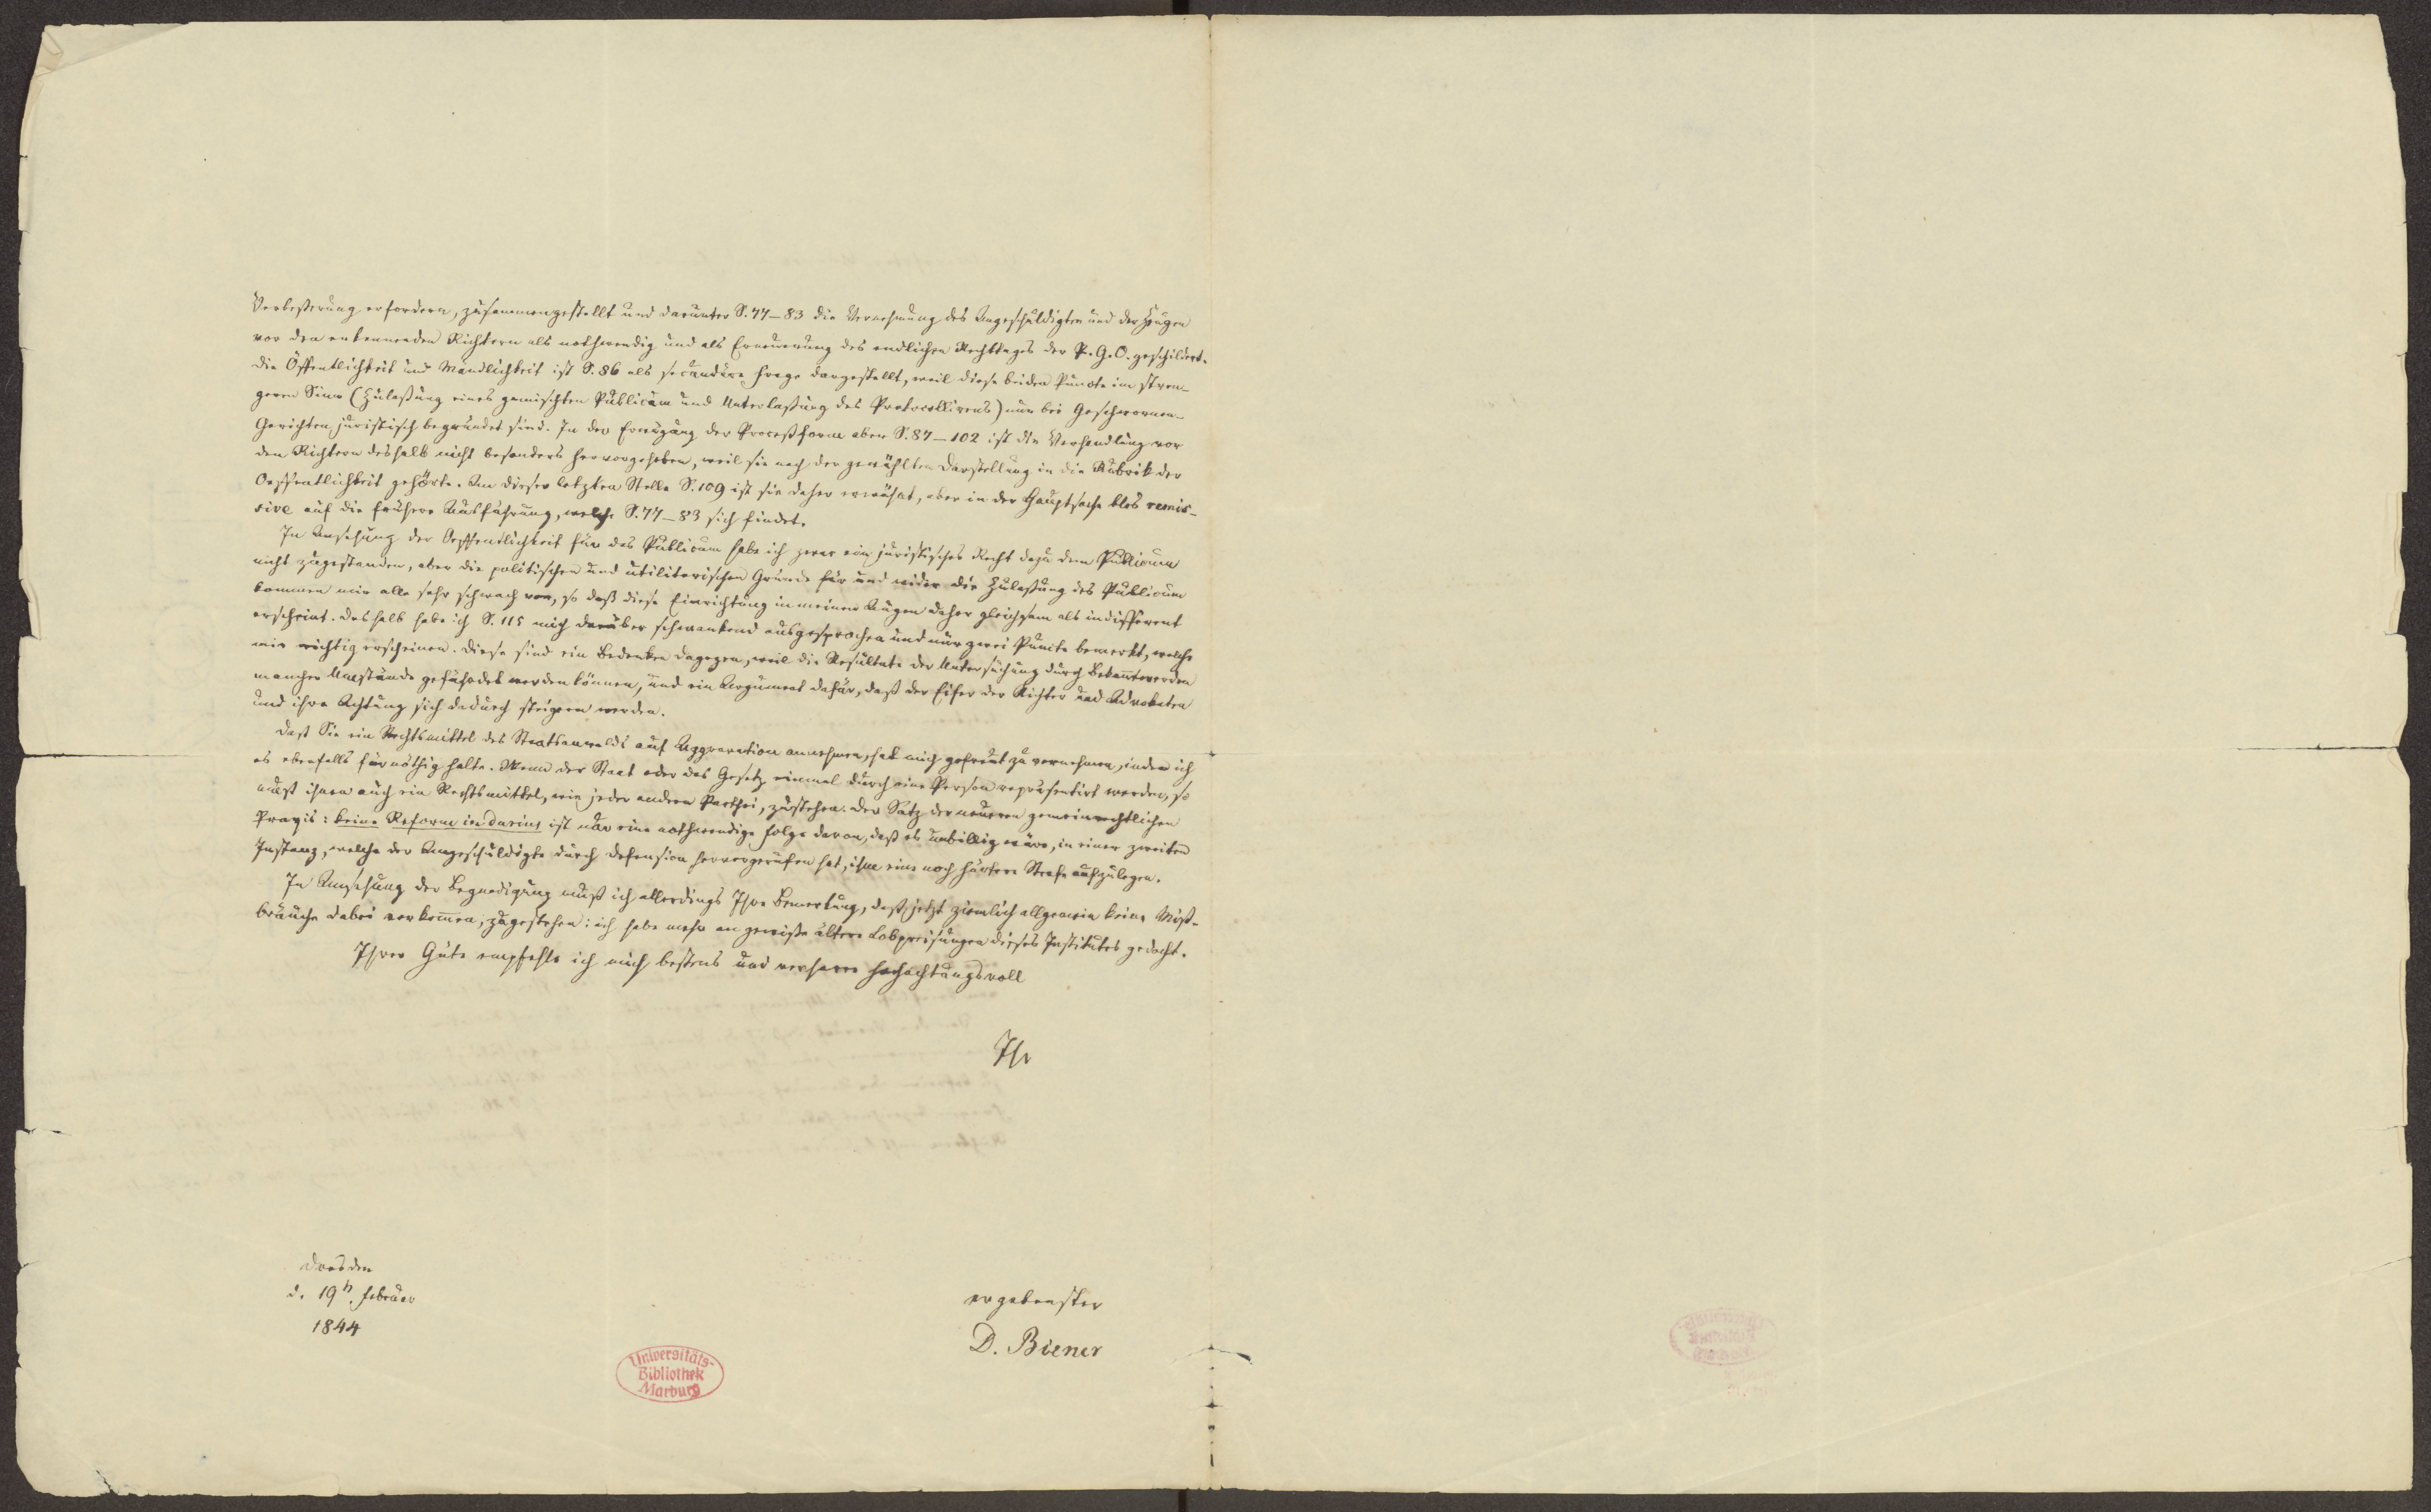 Verbeßerung erfordern, zusammengestellt und darunter S. 77–83 die Vernehmung des Angeschuldigten und der Zeugen
vor den erkennenden Richtern als nothwendig und als Erneuerung des endlichen Rechttages der P. G. O. geschildert.
Die Öffentlichkeit und Mündlichkeit ist S. 86 als secundäre Frage dargestellt, weil diese beiden Puncte im stren-
geren Sinn (Zulaßung eines gemischten Publicum und Unterlaßung des Protocollirens) nur bei Geschwornen-
Gerichten juristisch begründet sind. In der Erwägung der Proceßform aber S. 87–102 ist die Verhandlung vor
den Richtern deshalb nicht besonders hervorgehoben, weil sie nach der gewählten Darstellung in die Rubrik der
Oeffentlichkeit gehörte. An dieser letzten Stelle S. 109 ist sie daher erwähnt, aber in der Hauptsache blos remis-
sive auf die frühere Ausführung, welche S. 77–83 sich findet.
In Ansehung der Oeffentlichkeit für das Publicum habe ich zwar ein juristisches Recht dazu dem Publicum
nicht zugestanden, aber die politischen und utilitarischen Gründe für und wider die Zulaßung des Publicum
kommen mir alle sehr schwach vor, so daß diese Einrichtung in meinen Augen daher gleichsam als indifferent
erscheint. Deshalb habe ich S. 115 mich darüber schwankend ausgesprochen und nur zwei Puncte bemerkt, welche
mir wichtig erscheinen. Diese sind ein Bedenken dagegen, weil die Resultate der Untersuchung durch Bekanntwerden
mancher Umstände gefährdet werden können, und ein Argument dafür, daß der Eifer der Richter und Advokaten
und ihre Achtung sich dadurch steigern werden.
Daß Sie ein Rechtsmittel des Staatsanwalds auf Aggravation annehmen, hat mich gefreut zu vernehmen, indem ich
es ebenfalls für nöthig halte. Wenn der Staat oder das Gesetz einmal durch eine Person repräsentirt werden, so
muß ihnen auch ein Rechtsmittel, wie jeder andern Parthei, zustehen. Der Satz der neueren gemeinrechtlichen
Praxis: keine Reform in durius ist nur eine nothwendige Folge davon, daß es unbillig wäre, in einer zweiten
Instanz, welche der Angeschuldigte durch Defension hervorgerufen hat, ihm eine noch härtere Strafe aufzulegen.
In Ansehung der Begnadigung muß ich allerdings Ihre Bemerkung, daß jetzt ziemlich allgemein keine Miß-
bräuche dabei vorkommen, zugestehen: ich habe mehr an gewiße ältere Lobpreisungen dieses Institutes gedacht.
Ihrer Güte empfehle ich mich bestens und verharre hochachtungsvoll
Ihr
Dresden
d. 19n. Februar
1844
ergebenster
D. Biener
Universitäts-
Bibliothek
Marburg